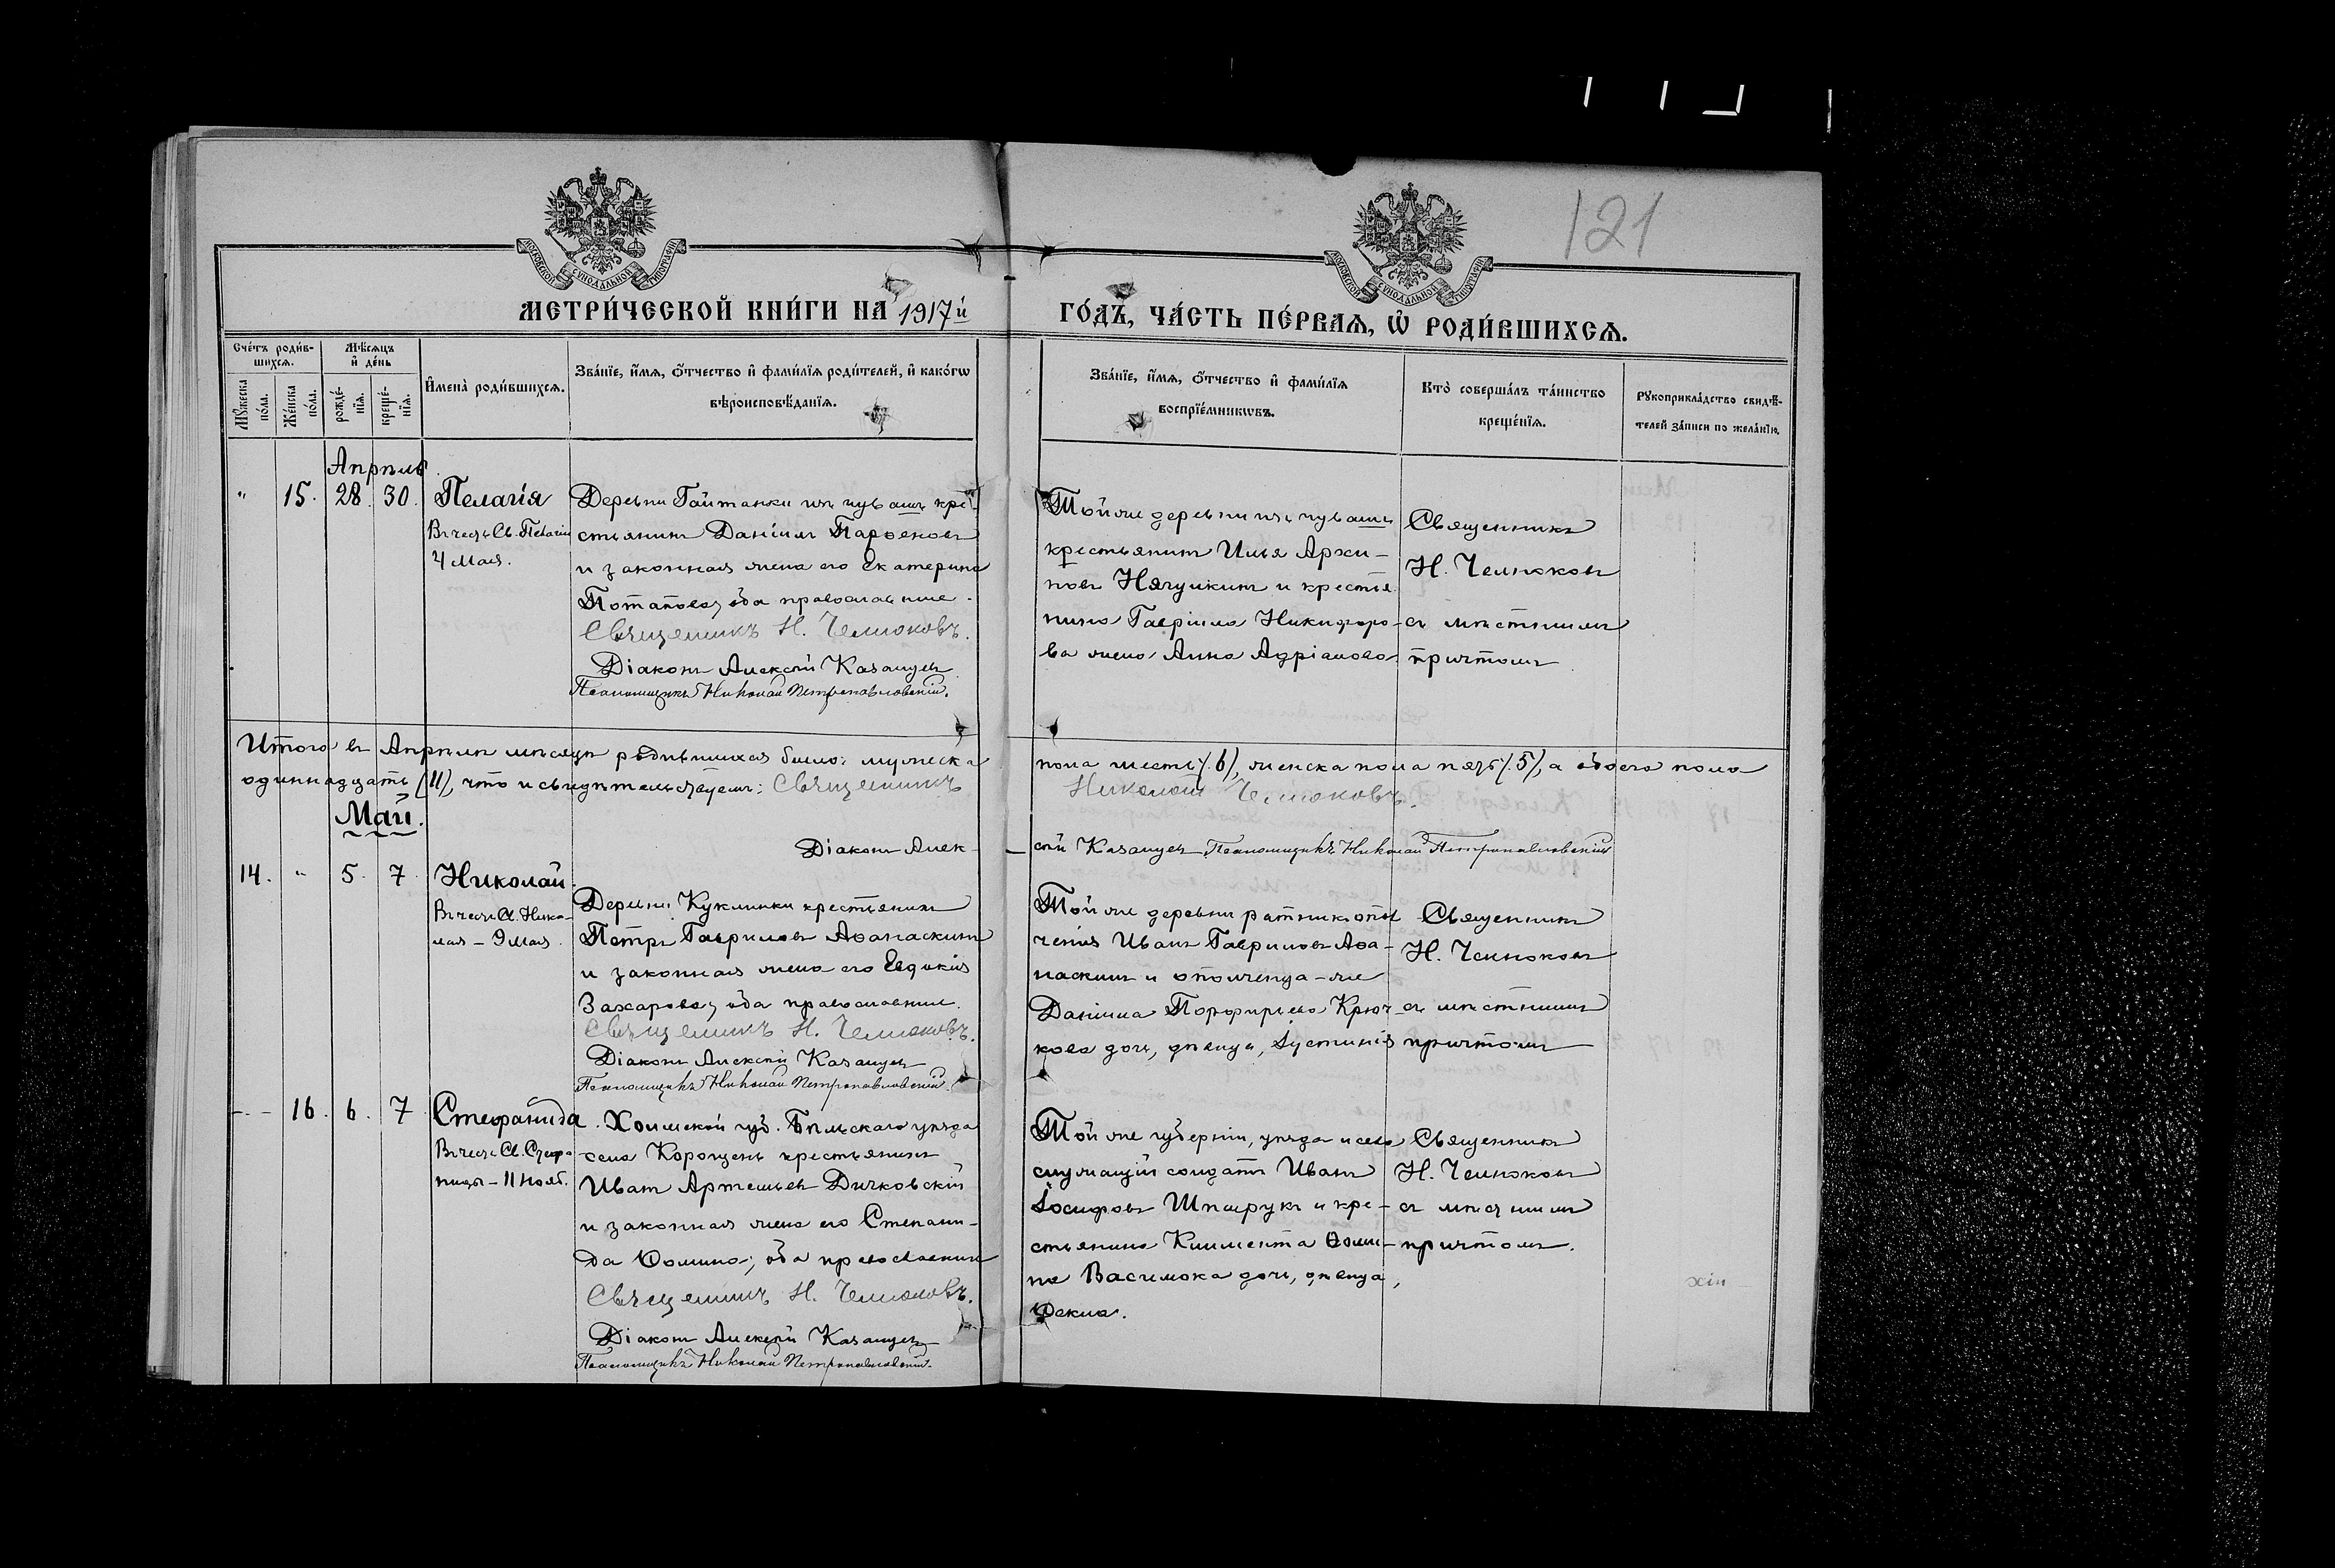 121
МОСКОВСКОЙ СѴНОДАЛЬНОЙ ТИПОГРАФІИ
МОСКОВСКОЙ СѴНОДАЛЬНОЙ ТИПОГРАФІИ
МЕТРИ́ЧЕСКОЙ КНИ́ГИ НА 1917й
ГО́ДЪ, ЧА́СТЬ ПЕ́РВАѦ, Ѡ҆ РОДИ́ВШИХСѦ.
Сче́тъ роди́в-
шихсѧ.
Мꙋ́жеска
по́ла.
Же́нска
по́ла.
Мѣ́сѧцъ
и҆ де́нь
рожде́-
нїѧ.
креще́-
нїѧ.
И҆мена̀ роди́вшихсѧ.
Зва́нїе, и҆́мѧ, ѻ҆́тчество и҆ фами́лїѧ роди́телей, и҆ како́гѡ
вѣроисповѣ́данїѧ.
Зва́нїе, и҆́мѧ, ѻ҆́тчество и҆ фами́лїѧ
воспрїе́мникѡвъ.
Кто̀ соверша́лъ та́инство
креще́нїѧ.
Рꙋкоприкла́дство свидѣ́-
телей за́писи по жела́нїю.
Апрѣль
" 15. 28. 30. Пелагія
Въ честь Св. Пелагіи
4 Мая.
Деревни Гайтанки изъ чувашъ кре-
стьянинъ Даніилъ Парѳеновъ
и законная жена его Екатерина
Потапова, оба православные.
Священникъ Н. Челноковъ.
Діаконъ Алексѣй Казанцевъ
Псаломщикъ Николай Петропавловскій.
Той же деревни изъ чувашъ
крестьянинъ Илья Архи-
повъ Нягушкинъ и крестья
нина Гавріила Никифоро-
ва жена Анна Адріанова
Священникъ
Н. Челноковъ
съ мѣстнымъ
причтомъ
Итого въ Апрѣлѣ мѣсяцѣ родившихся было: мужеска
пола шесть (6), женска пола пять (5), а обоего пола
одиннадцать (11), что и свидѣтельствуемъ: Священникъ
Николай Челноковъ.
Май.
Діаконъ Алек-
сѣй Казанцевъ Псаломщикъ Николай Петропавловскій
14. " 5. 7. Николай
Въ честь Св. Нико-
лая – 9 Мая.
Деревни Куклинки крестьянинъ
Петръ Гавриловъ Аѳанаскинъ
и законная жена его Евдокія
Захарова, оба православные.
Священникъ Н. Челноковъ.
Діаконъ Алексѣй Казанцевъ
Псаломщикъ Николай Петропавловскій.
Той же деревни ратникъ опол
ченія Иванъ Гавриловъ Аѳа-
наскинъ и ополченца-же
Даніила Порфирьева Крюч-
кова дочь, дѣвица, Іустинія
Священникъ
Н. Челноковъ
съ мѣстнымъ
причтомъ
- - 16. 6. 7 Стефанида
Въ честь Св. Стефа-
ниды – 11 Нояб.
Холмской губ. Бѣльскаго уѣзда
села Корощенъ крестьянинъ
Иванъ Артемьевъ Дичковскій
и законная жена его Степани-
да Ѳомина; оба православные
Священникъ Н. Челноковъ.
Діаконъ Алексѣй Казанцевъ
Псаломщикъ Николай Петропавловскій.
Той же губерніи, уѣзда и села
служащій солдатъ Иванъ
Іосифовъ Шпарукъ и кре-
стьянина Климента Ѳоми-
на Василюка дочь, дѣвица,
Ѳекла.
Священникъ
Н. Челноковъ
съ мѣстнымъ
причтомъ.